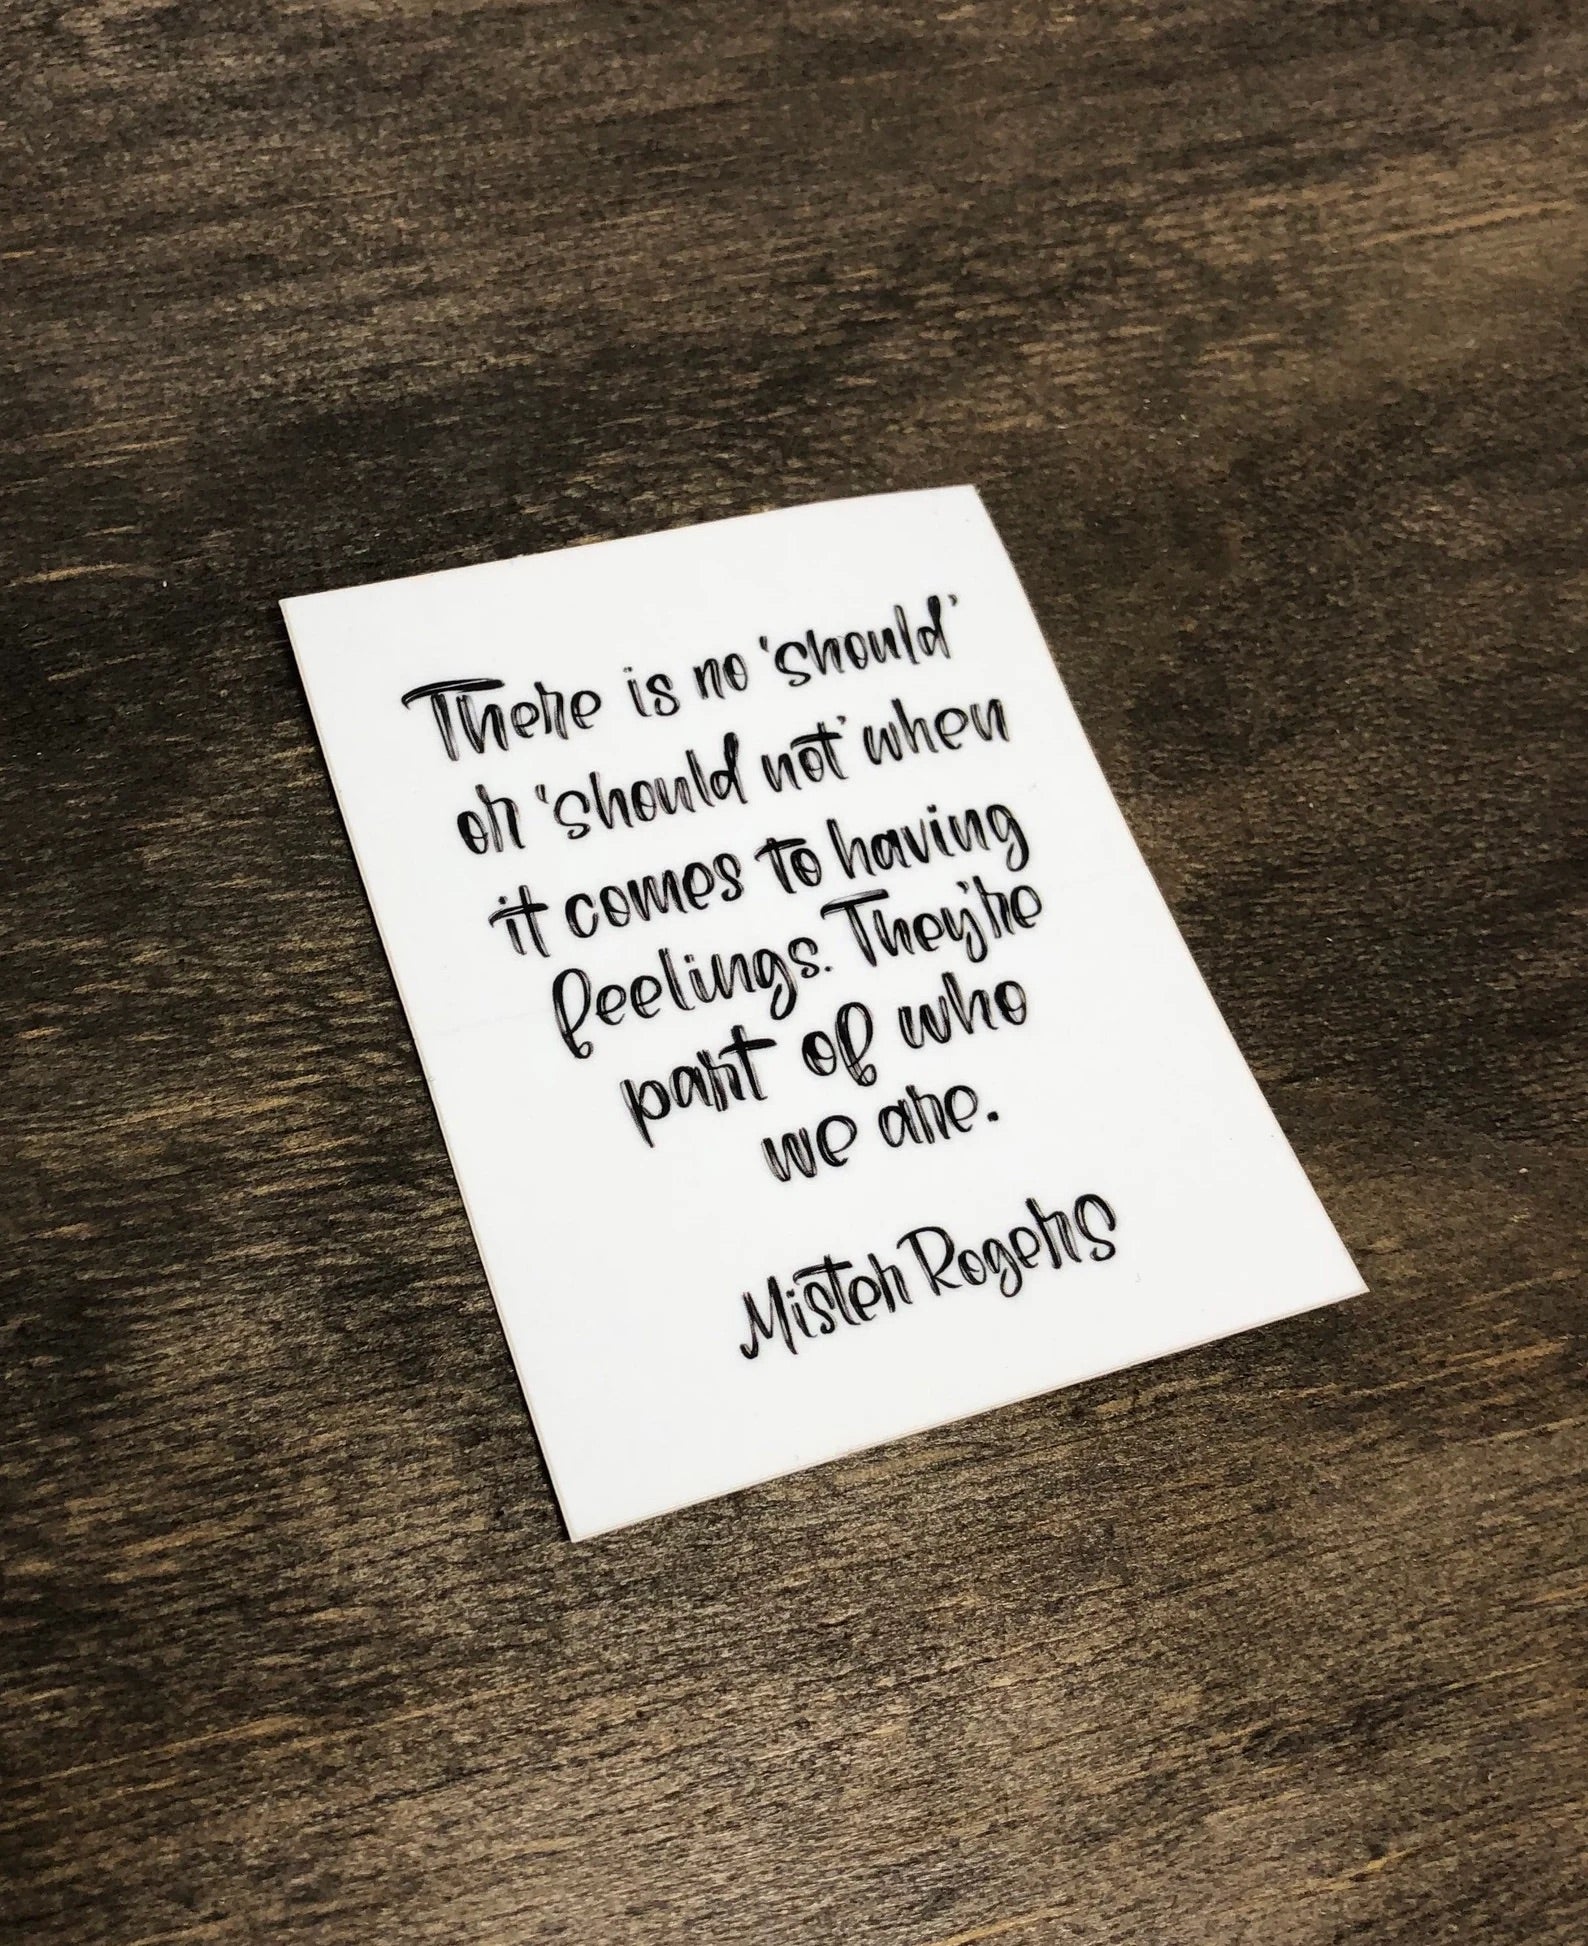 There is no 'should'
or 'should not' when
it comes to having
feelings. They're
part of who
we are.
Mister Rogers